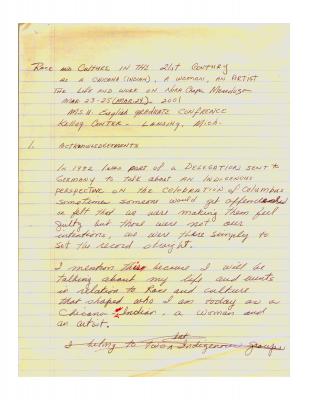 Race and Culture in the 21st Century
as a Chicana (Indian), a woman, an Artist
The life and work on Nora Chapa Mendoza
Mar 23-25 (Mar 24), 2001
M.S.U. English Graduate Conference
Kellogg Center - Lansing, Mich.
1. Acknowledgements
In 1992 I was part of a Delegation sent to
Germany to talk about an Indigenous
perspective on the celebration of Columbus
sometimes someone would get offended
or felt that we were making them feel
guilty but those were not our
intentions, we were there simply to
set the record straight.
I mention this because I will be
talking about my life and events
in relation to Race and culture
that shaped who I am today as a
Chicana - Indian, a woman and
an artist.
I belong to two Indigenous groups